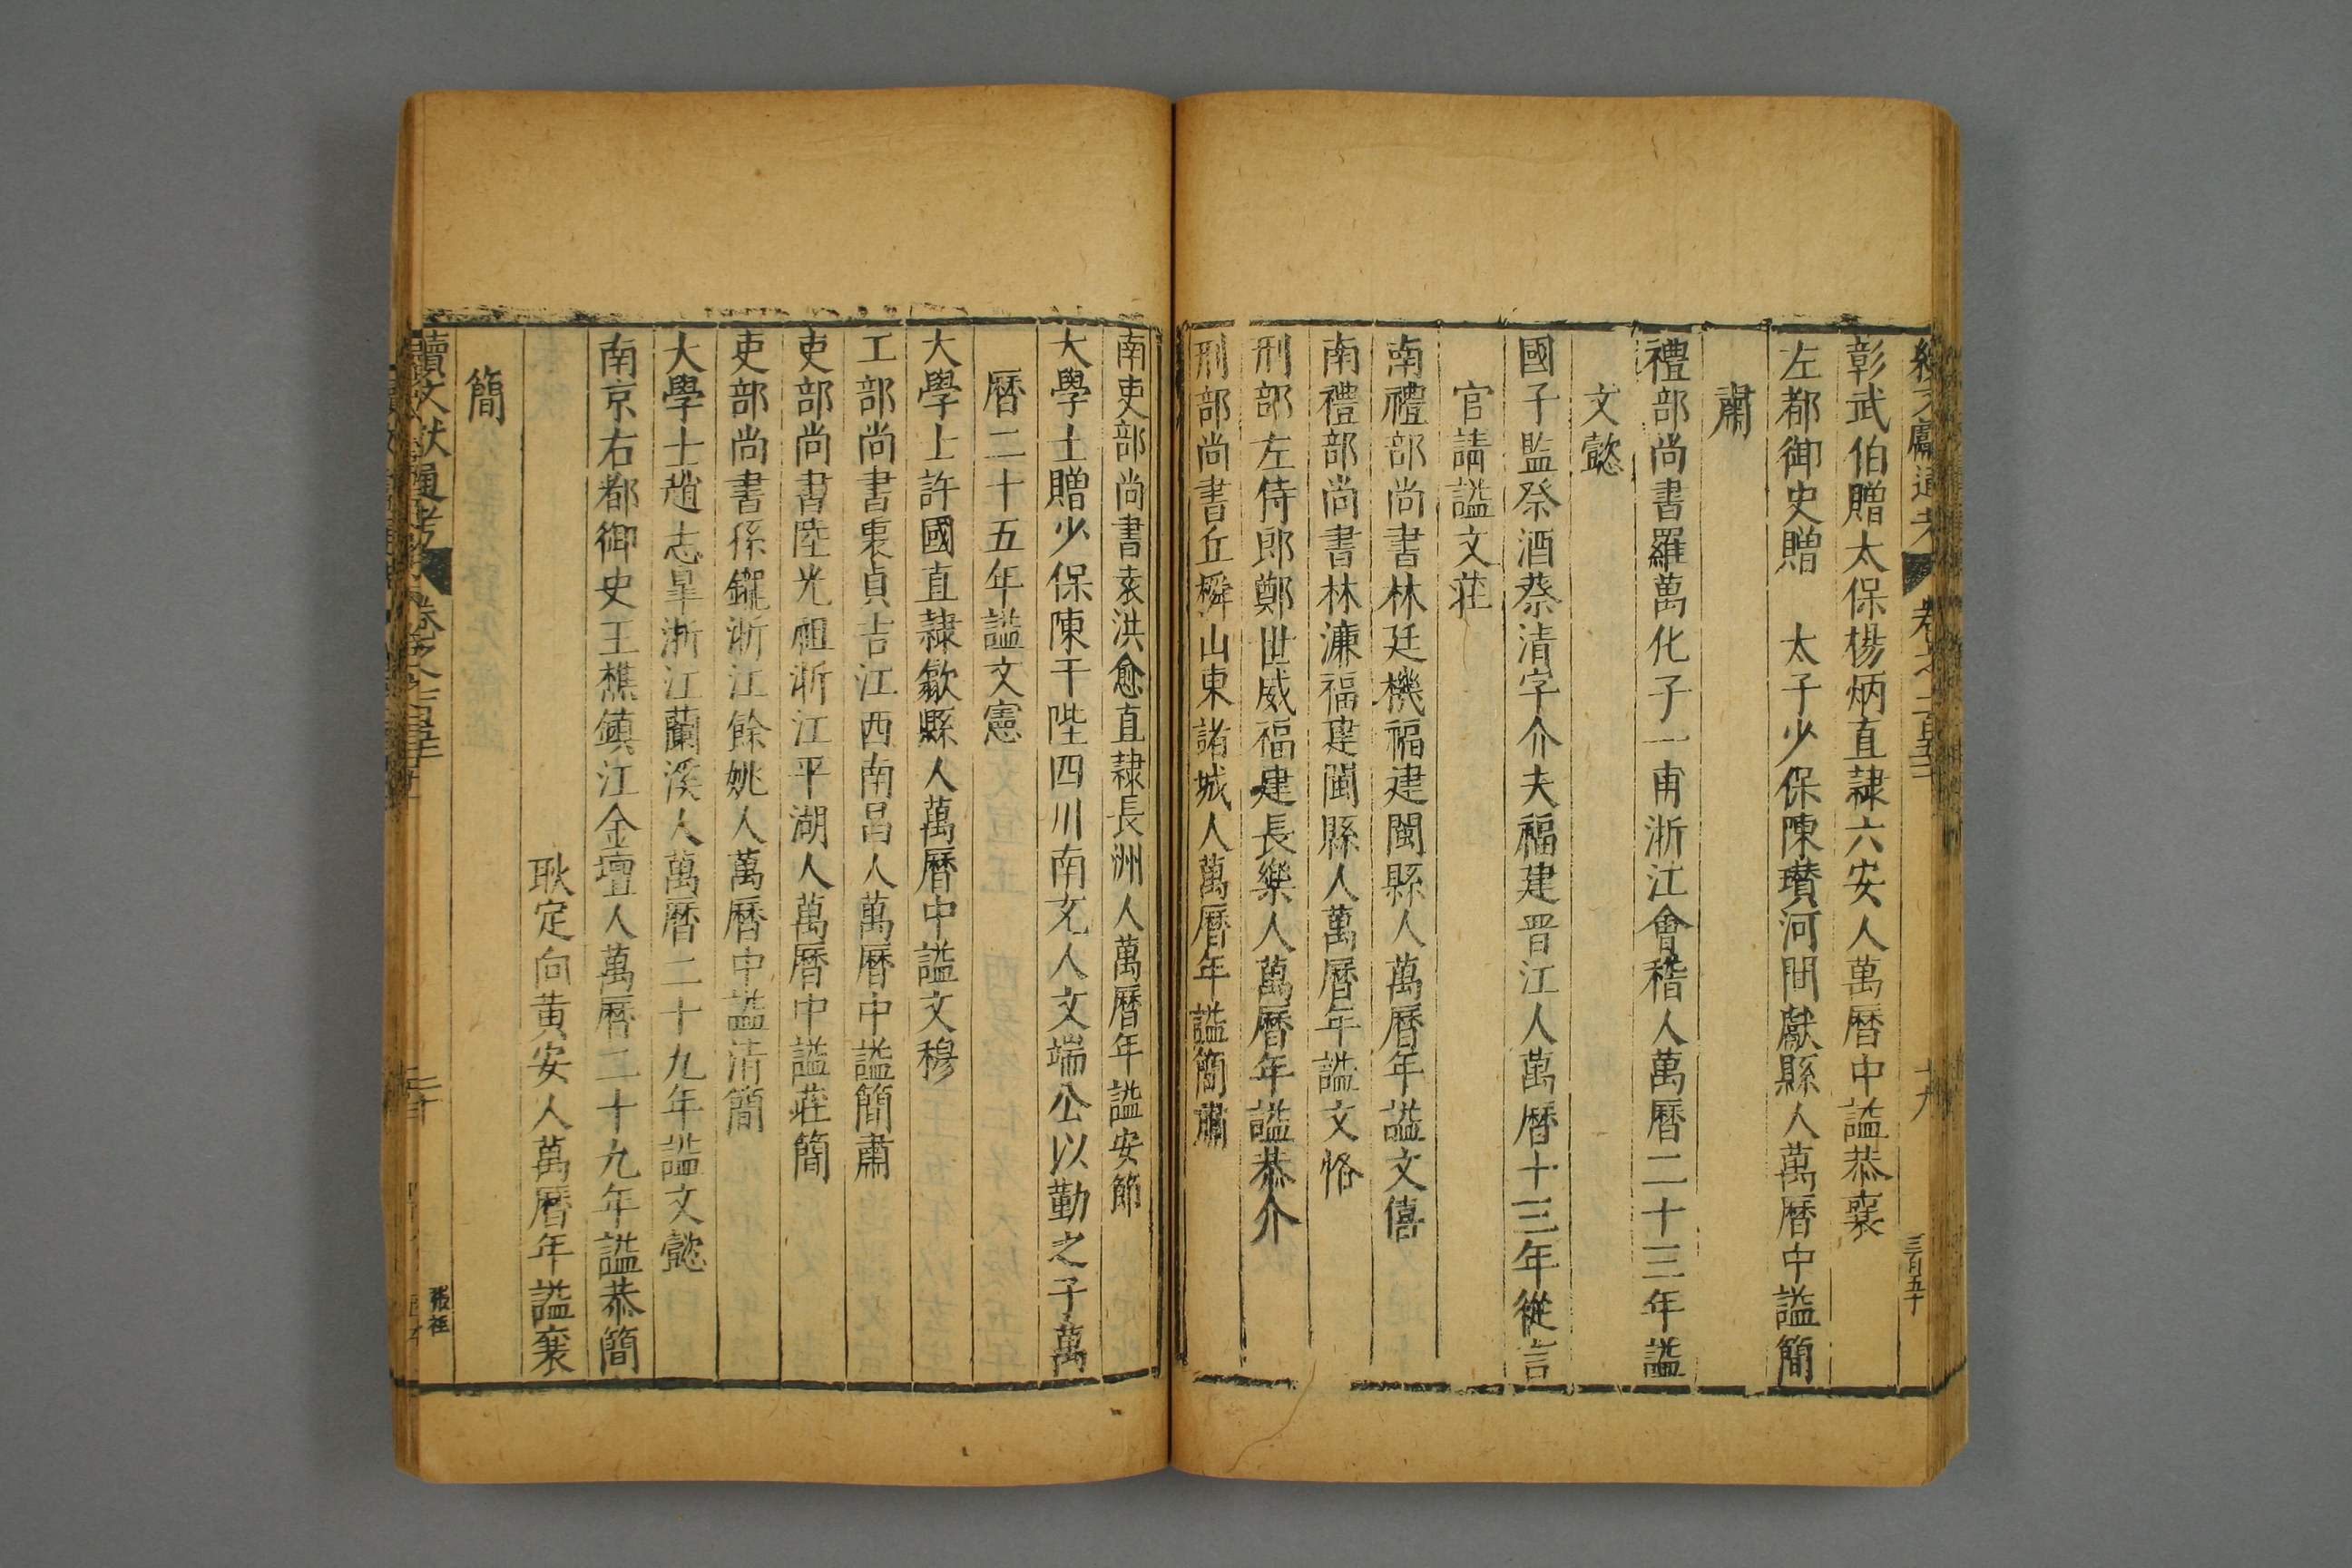 續文獻通考 卷之一百五十 十九 三百五十
彰武伯贈太保楊炳直隷六安人萬曆中諡恭襄
左都御史贈 太子少保陳瓚河間獻縣人萬曆中諡簡
肅
禮部尚書羅萬化子一甫浙江會稽人萬曆二十三年諡
文懿
國子監祭酒蔡清字介夫福建晋江人萬曆十三年從言
官請諡文莊
南禮部尚書林廷機福建閩縣人萬曆年諡文僖
南禮部尚書林濂福建閩縣人萬曆年諡文恪
刑部左侍郎鄭世威福建長樂人萬曆年諡恭介
刑部尚書丘橓山東諸城人萬曆年諡簡肅
南吏部尚書袁洪愈直隷長洲人萬曆年諡安節
大學士贈少保陳于陛四川南充人文端公以勤之子萬
曆二十五年諡文憲
大學士許國直隷歙縣人萬曆中諡文穆
工部尚書衷貞吉江西南昌人萬曆中諡簡肅
吏部尚書陸光祖浙江平湖人萬曆中諡莊簡
吏部尚書孫鑨浙江餘姚人萬曆中諡清簡
大學士趙志皐浙江蘭溪人萬曆二十九年諡文懿
南京右都御史王樵鎮江金壇人萬曆二十九年諡恭簡
耿定向黄安人萬曆年諡襄
簡
續文獻通考 二十